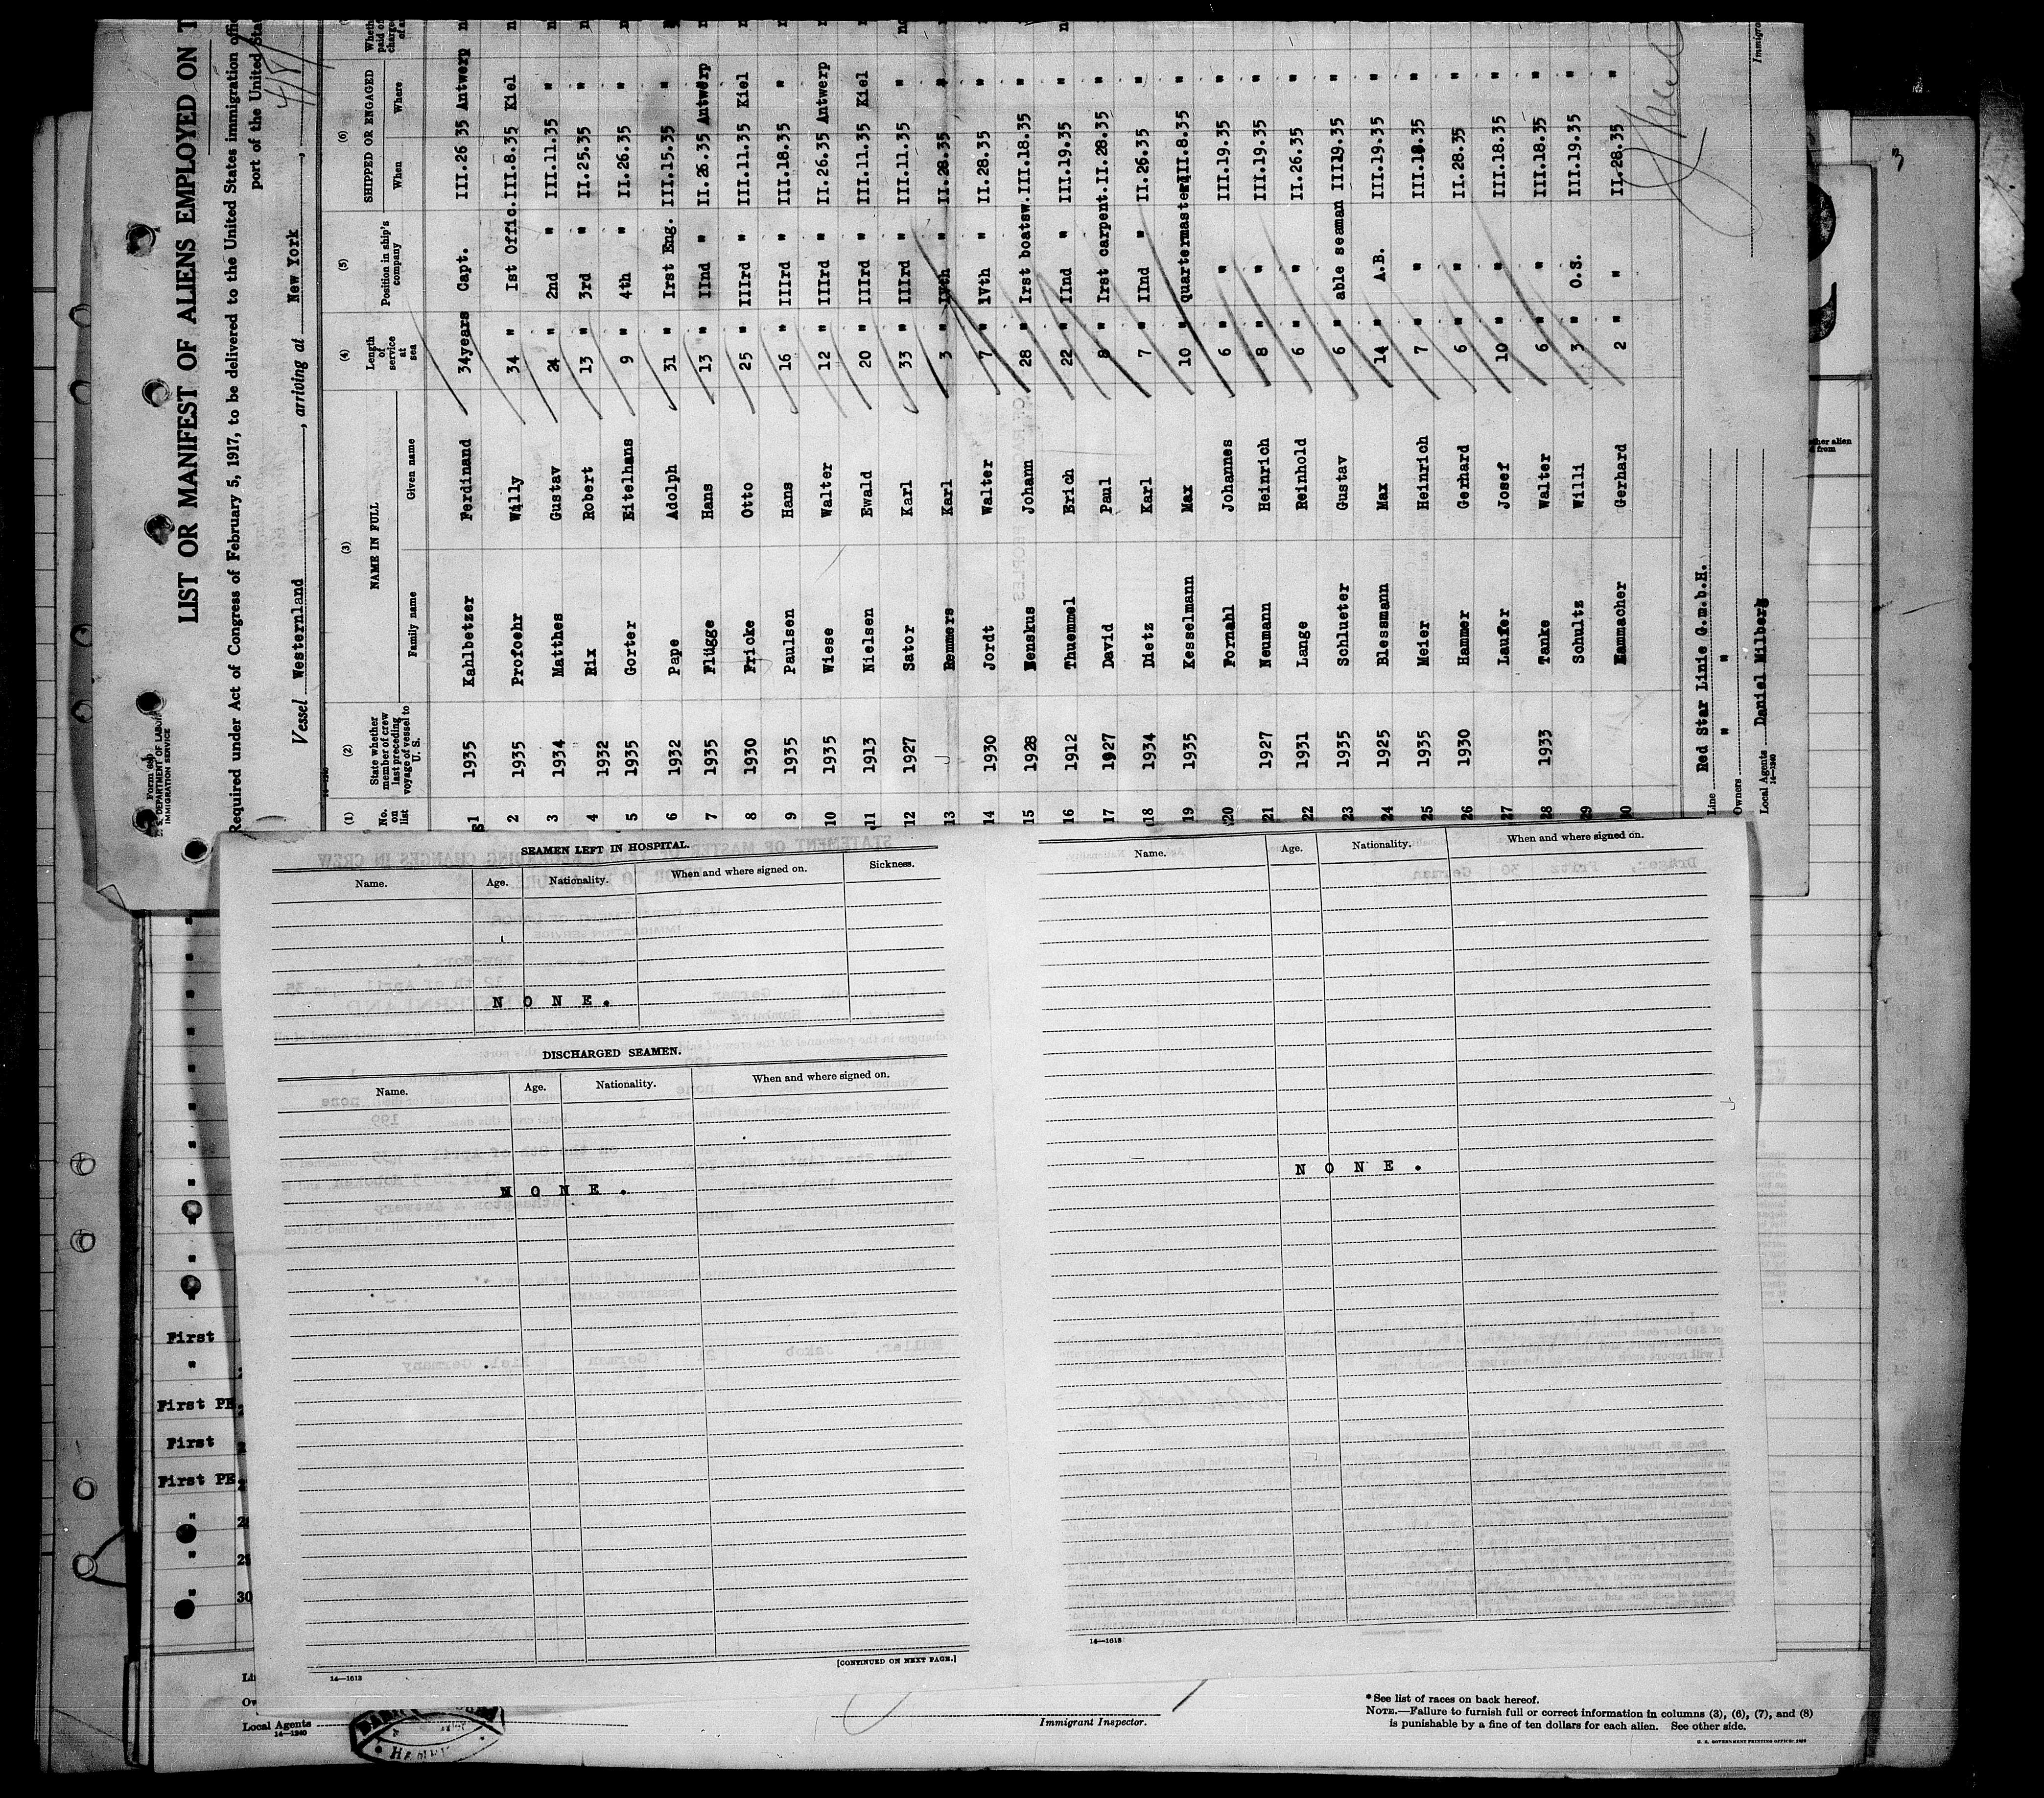 LIST OR MANIFEST OF ALIENS EMPLOYED ON T
Required under Act of Congress of February 5, 1917, to be delivered to the United States immigration offic
port of the United Sta
Vessel Westernland, arriving at New York,
DEPARTMENT OF LABOR
IMMIGRATION SERVICE
(1) (2) (3) (4) (5) (6)
No. on list
State whether member of crew last preceding voyage of vessel to U. S.
NAME IN FULL
Family name Given name
Length of service at sea
Position in ship's company
SHIPPED OR ENGAGED
When Where
1 1935 Kahlbetzer Ferdinand 34years Capt. III.26 35 Antwerp
2 1935 Profoehr Willy 34 " 1st Offic. III.8.35 Kiel
3 1934 Matthes Gustav 24 " 2nd " III.11.35 "
4 1932 Rix Robert 13 " 3rd " II.25.35 "
5 1935 Gorter Eitelhans 9 " 4th " II.26.35 "
6 1932 Pape Adolph 31 " Irst Eng. III.15.35 "
7 1935 Flügge Hans 13 " IInd " II.26.35 Antwerp
8 1930 Fricke Otto 25 " IIIrd " III.11.35 Kiel
9 1935 Paulsen Hans 16 " IIIrd " III.18.35 "
10 1935 Wiese Walter 12 " IIIrd " II.26.35 Antwerp
11 1913 Nielsen Ewald 20 " IIIrd " III.11.35 Kiel
12 1927 Sator Karl 33 " IIIrd " III.11.35 "
13 Remmers Karl 3 " IVth " II.28.35 "
14 1930 Jordt Walter 7 " IVth " II.28.35 "
15 1928 Johann 28 " Irst boatsw. III.18.35 "
16 1912 Thuemmel Erich 22 " IInd " III.19.35 "
17 1927 David Paul 8 " Irst carpent. II.28.35 "
18 1934 Dietz Karl 7 " IInd " II.26.35 "
19 1935 Kesselmann Max 10 " quartermaster III.8.35 "
20 Fornahl Johannes 6 " " III.19.35 "
21 1927 Neumann Heinrich 8 " " III.19.35 "
22 1931 Lange Reinhold 6 " " II.26.35 "
23 1935 Schlueter Gustav 6 " able seaman III19.35 "
24 1925 Blessmann Max 14 " A.B. III.19.35 "
25 1935 Meier Heinrich 7 " " III.18.35 "
26 1930 Hammer Gerhard 6 " " II.28.35 "
27 Laufer Josef 10 " " III.18.35 "
28 1933 Tanke Walter 6 " " III.18.35 "
29 Schultz Willi 3 " O.S. III.19.35 "
30 Gerhard 2 " " II.28.35 "
Line Red Star Linie G.m.b.H.
Owners " "
Local Agents Daniel Milberg
14—1240
SEAMEN LEFT IN HOSPITAL.
Name. Age. Nationality. When and where signed on. Sickness.
NONE.
DISCHARGED SEAMEN.
Name. Age. Nationality. When and where signed on.
NONE.
14—1613
[CONTINUED ON NEXT PAGE.]
Name. Age. Nationality. When and where signed on.
NONE.
14—1613
First
First PE
First
First PE
30
Local Agents
14—1240
Immigrant Inspector.
*See list of races on back hereof.
NOTE.—Failure to furnish full or correct information in columns (3), (6), (7), and (8)
is punishable by a fine of ten dollars for each alien. See other side.
U. S. GOVERNMENT PRINTING OFFICE